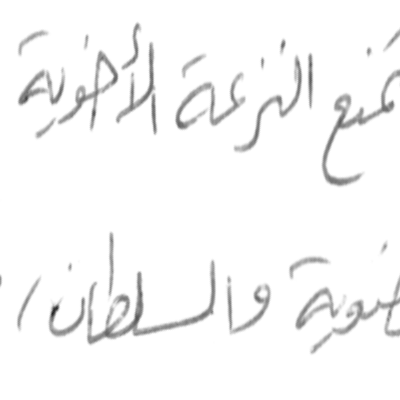 تمنع النزعة الأخوية
والسلطان،